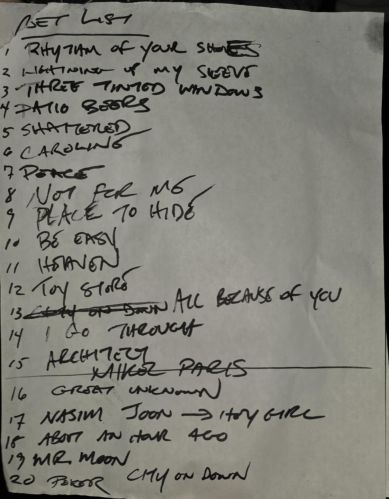 SET LIST
1 RHYTHM OF YOUR SHOES
2 LIGHTNING UP MY SLEEVE
3 THREE TINTED WINDOWS
4 PATIO BEERS
5 SHATTERED
6 CAROLINE
7 PEACE
8 NOT FOR ME
9 PLACE TO HIDE
10 BE EASY
11 HEAVEN
12 TOY STORE
13 CITY ON DOWN ALL BECAUSE OF YOU
14 I GO THROUGH
15 ARCHITECT
PARIS
16 GREAT UNKNOWN
17 NASIM JOON → HEY GIRL
18 ABOUT AN HOUR AGO
19 MR MOON
20 POKER CITY ON DOWN